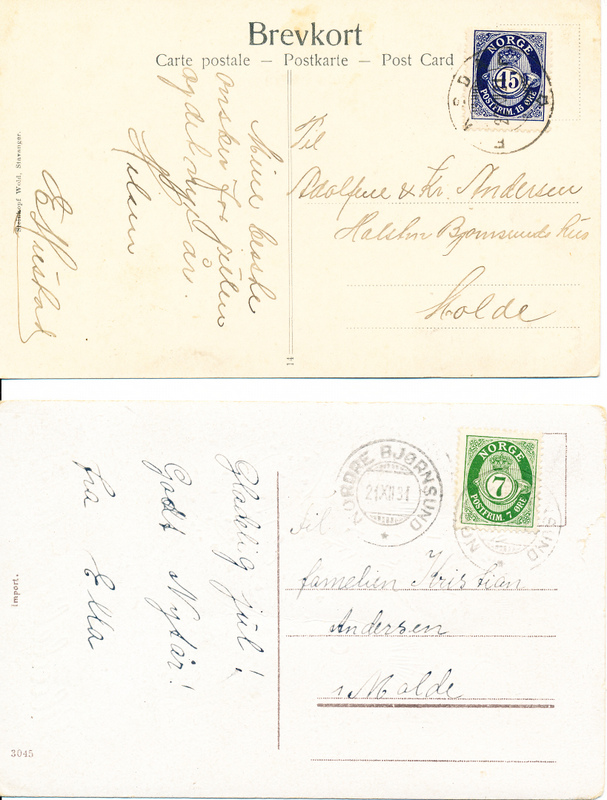 Brevkort
Carte postale — Postkarte — Post Card
NORGE
15
POSTFRIM. 15 ØRE
Mine beste
ønsker for julen
og det nye år.
Hilsen
Til
Adolfine & Kr. Andersen
Halsten Bjørnsunds hus
Molde
Wold, Stavanger.
14
NORDRE BJØRNSUND
21 XII 31
NORGE
7
POSTFRIM. 7 ØRE
Gladelig jul!
Godt Nytår!
fra Ella
til
familien Kristian
Andersen
i Molde
Import.
3045